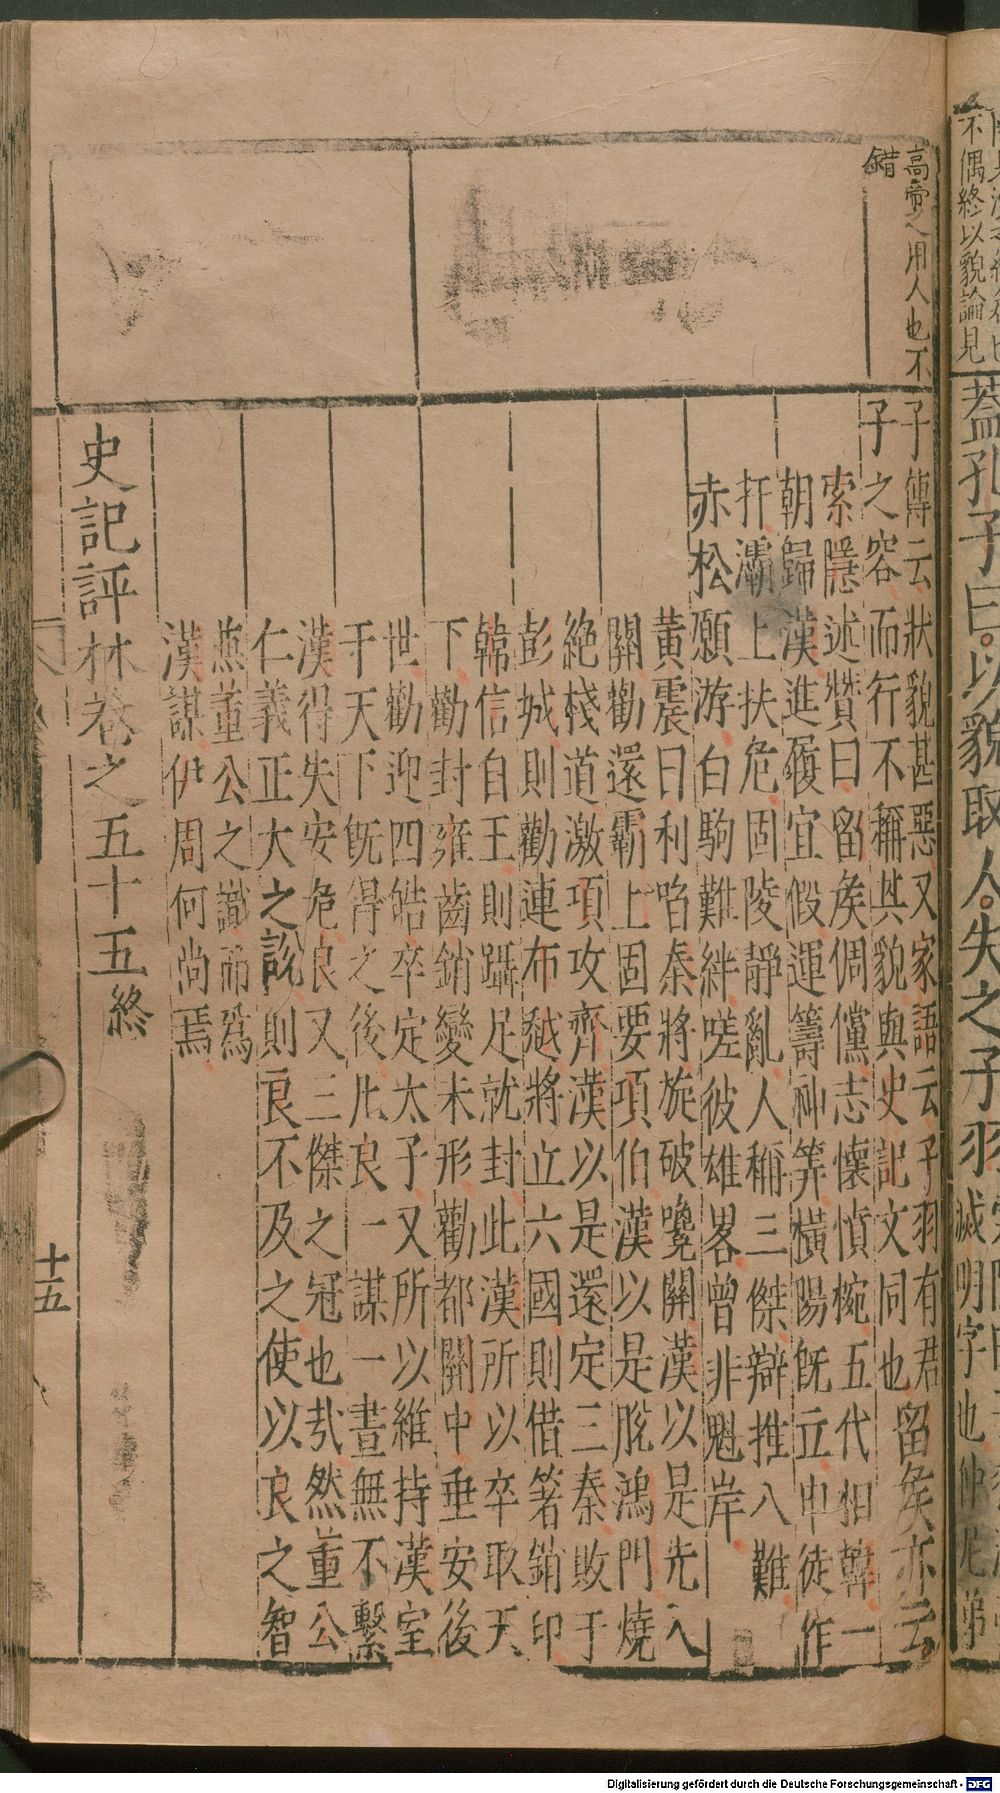 不偶終以貌論見
蓋孔子曰以貌取人失之子羽
滅明字也仲尼弟
高帝之用人也不
錯
子傳云狀貌甚惡又家語云子羽有君
子之容而行不稱其貌與史記文同也
留矦亦云
索隱述贊曰留矦倜儻志懷憤惋五代相韓一
朝歸漢進履宜假運籌神筭橫陽旣立申徒作
扞灞上扶危固陵靜亂人稱三傑辯推八難
赤松願游白駒難絆嗟彼雄畧曾非魁岸
黃震曰利啗秦將旋破嶢關漢以是先入
關勸還霸上固要項伯漢以是脫鴻門燒
絕棧道激項攻齊漢以是還定三秦敗于
彭城則勸連布越將立六國則借箸銷印
韓信自王則躡足就封此漢所以卒取天
下勸封雍齒銷變未形勸都關中垂安後
世勸迎四皓卒定太子又所以維持漢室
于天下旣得之後凡良一謀一畫無不繫
漢得失安危良又三傑之冠也㢤然董公
仁義正大之說則良不及之使以良之智
兼董公之識而爲
漢謀伊周何尚焉
史記評林卷之五十五終
十五
Digitalisierung gefördert durch die Deutsche Forschungsgemeinschaft - DFG